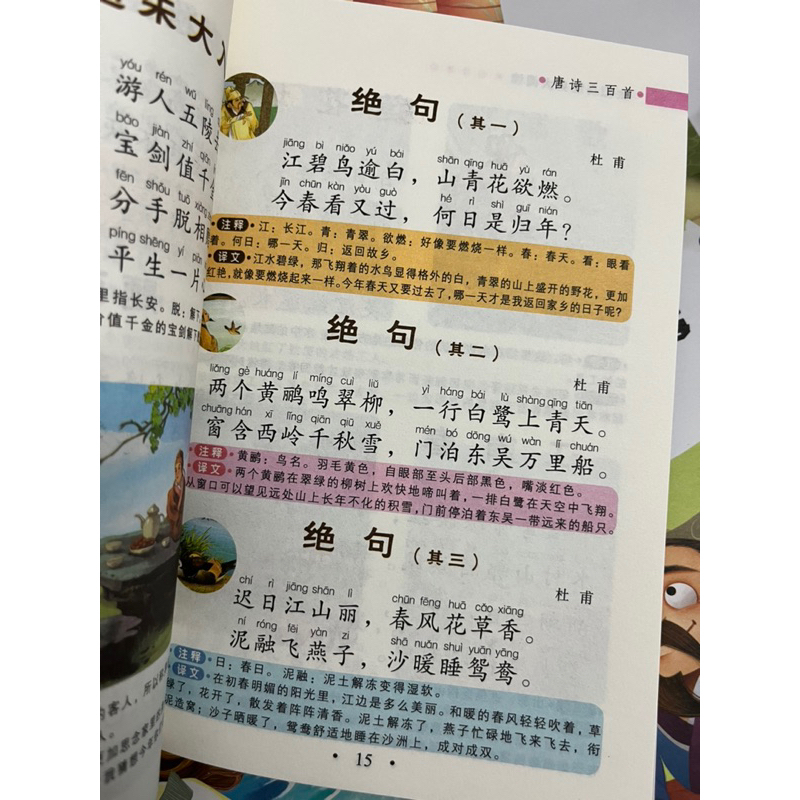 游人五陵
宝剑值千
分手脱相
平生一片
里指长安。脱:解下
价值千金的宝剑解下
yóu rén wǔ líng
bǎo jiàn zhí qiān
fēn shǒu tuō xiāng
píng shēng yí piàn
唐诗三百首
绝句(其一)
杜甫
jiāng bì niǎo yú bái shān qīng huā yù rán
江碧鸟逾白,山青花欲燃。
jīn chūn kàn yòu guò hé rì shì guī nián
今春看又过,何日是归年?
注释 江:长江。青:青翠。欲燃:好像要燃烧一样。春:春天。看:眼看
着。何日:哪一天。归:返回故乡。
译文 江水碧绿,那飞翔着的水鸟显得格外的白,青翠的山上盛开的野花,更加
红艳,就像要燃烧起来一样。今年春天又要过去了,哪一天才是我返回家乡的日子呢?
绝句(其二)
杜甫
liǎng gè huáng lí míng cuì liǔ yì háng bái lù shàng qīng tiān
两个黄鹂鸣翠柳,一行白鹭上青天。
chuāng hán xī lǐng qiān qiū xuě mén bó dōng wú wàn lǐ chuán
窗含西岭千秋雪,门泊东吴万里船。
注释 黄鹂:鸟名。羽毛黄色,自眼部至头后部黑色,嘴淡红色。
译文 两个黄鹂在翠绿的柳树上欢快地啼叫着,一排白鹭在天空中飞翔。
从窗口可以望见远处山上长年不化的积雪,门前停泊着东吴一带远来的船只。
绝句(其三)
杜甫
chí rì jiāng shān lì chūn fēng huā cǎo xiāng
迟日江山丽,春风花草香。
ní róng fēi yàn zi shā nuǎn shuì yuān yāng
泥融飞燕子,沙暖睡鸳鸯。
注释 日:春日。泥融:泥土解冻变得湿软。
译文 在初春明媚的阳光里,江边是多么美丽。和暖的春风轻轻吹着,草
绿了,花开了,散发着阵阵清香。泥土解冻了,燕子忙碌地飞来飞去,衔
泥造窝;沙子晒暖了,鸳鸯舒适地睡在沙洲上,成对成双。
15